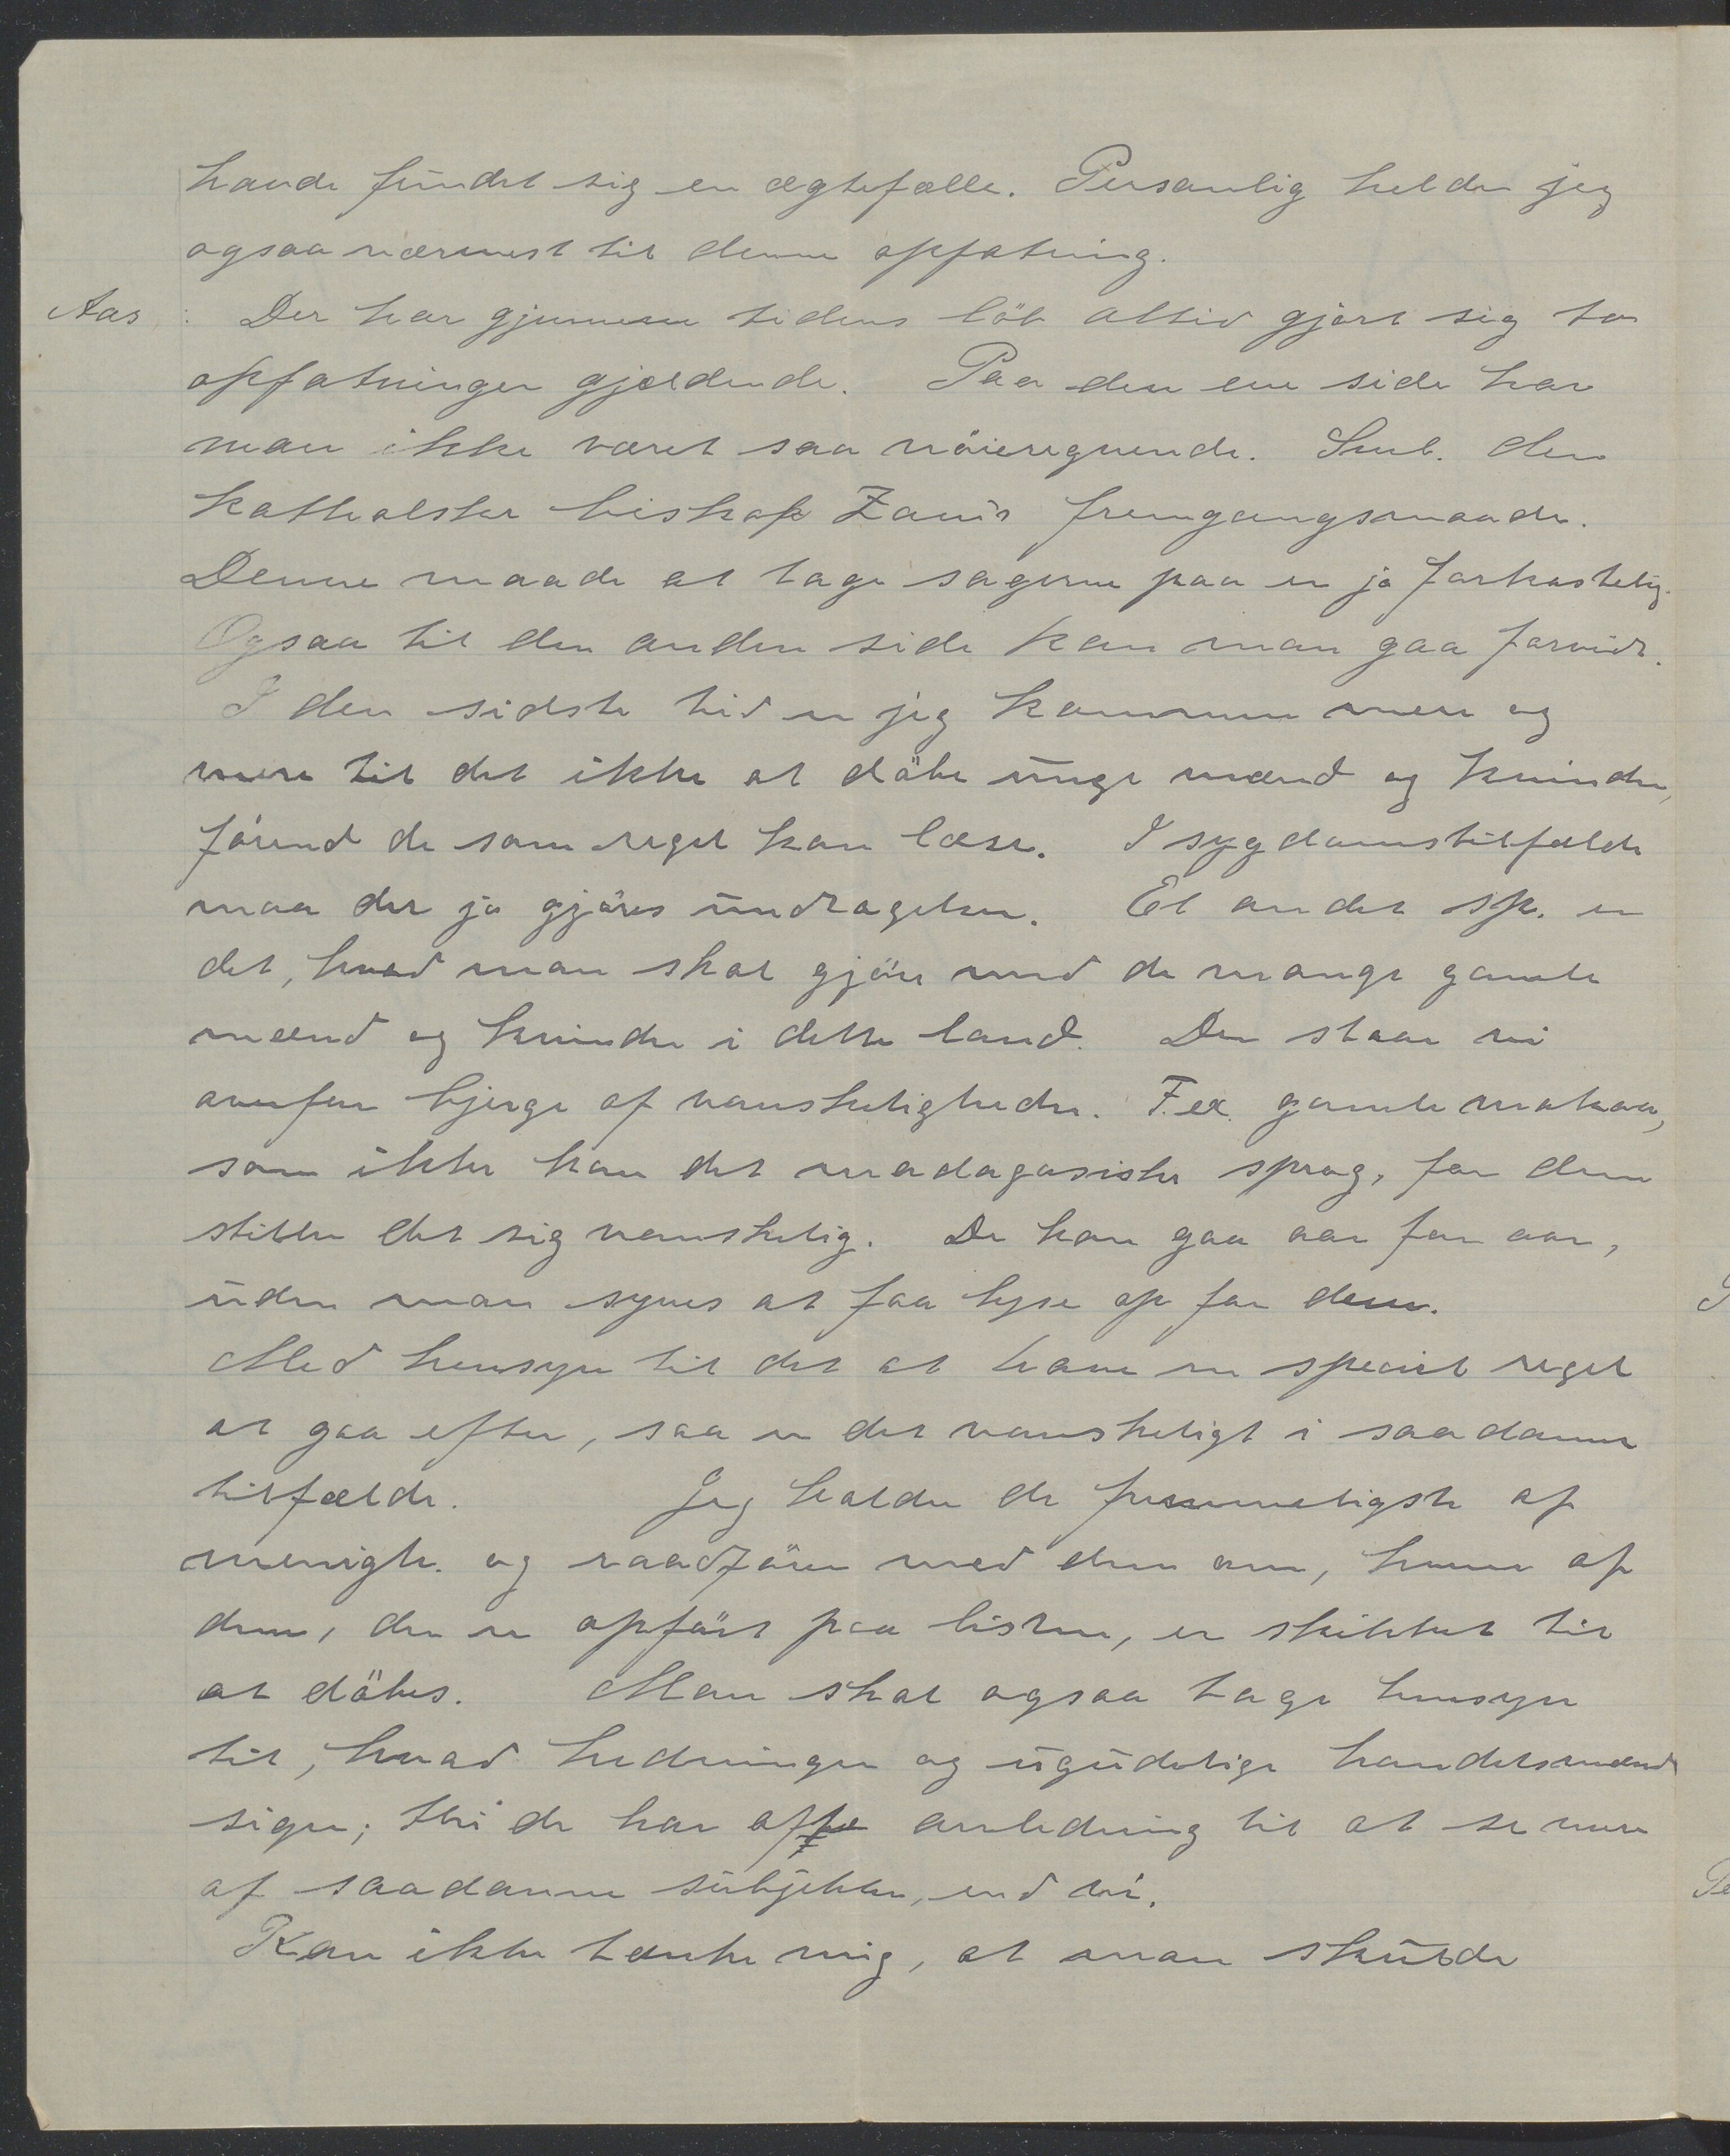 havde fundet sig en ægtefælle. Personlig helder jeg
ogsaa nærmest til denne opfatning.
Aas : Der har gjennem tidens löb altid gjort sig to
opfatninger gjældende. Paa den ene side har
man ikke været saa nöieregnende. Smlb. den
katholske biskop Zaui's fremgangsmaade.
Denne maade at tage sagerne paa er jo forkastelig.
Ogsaa til den anden side kan man gaa forvidt.
I den sidste tid er jeg kommen mere og
mere til det ikke at döbe unge mænd og kvinder,
förend de som regel kan læse. I sygdomstilfælde
maa der jo gjöres undtagelser. Et andet sp. er
det, hvad man skal gjöre med de mange gamle
mænd og kvinder i dette land. Der staar vi
overfor bjerge af vanskeligheder. F.ex. gamle makoa,
som ikke kan det madagasiske sprog, for dem
stiller det sig vanskelig. De kan gaa aar for aar,
uden man synes at faa lyse op for dem.
Med hensyn til det at have en speciel regel
at gaa efter, saa er det vanskeligt i saadanne
tilfælde. Jeg kalder de fremmeligste af
menigh. og raadförer med dem om, hvem af
dem, der er opfört paa listen, er skikket til
at döbes. Man skal ogsaa tage hensyn
til, hvad hedninger og ugudelige handelsmænd
siger; thi de har ofte anledning til at se mere
af saadanne subjekter, end vi.
Kan ikke tænke mig, at man skulde